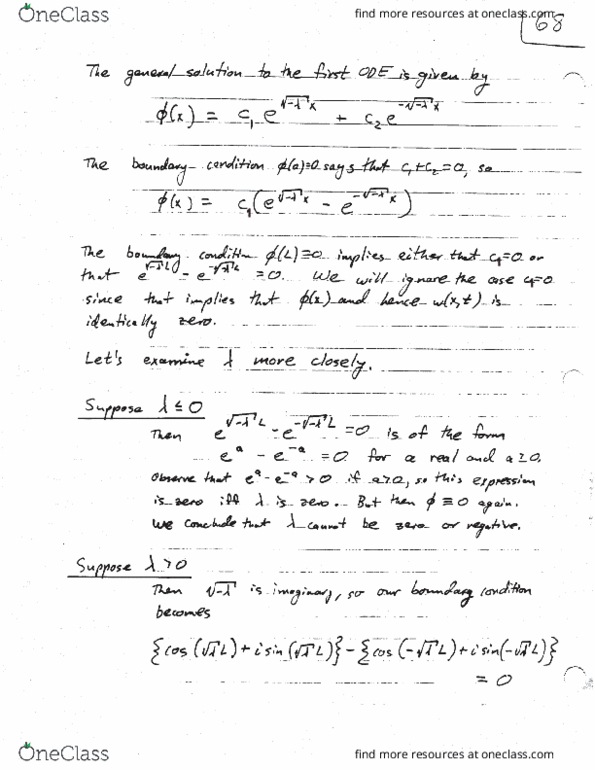 OneClass
find more resources at oneclass.com
68
The general solution to the first ODE is given by
ϕ(x) = c₁ e^{√-λ x} + c₂ e^{-√-λ x}
The boundary condition ϕ(0)=0 says that c₁+c₂=0, so
ϕ(x) = c₁(e^{√-λ x} - e^{-√-λ x})
The boundary condition ϕ(L)=0 implies either that c₁=0 or
that e^{√-λ L} - e^{-√-λ L} = 0. We will ignore the case c₁=0
since that implies that ϕ(x) and hence u(x,t) is
identically zero.
Let's examine λ more closely.
Suppose λ ≤ 0
Then e^{√-λ L} - e^{-√-λ L} = 0 is of the form
e^a - e^{-a} = 0 for a real and a≥0.
Observe that e^a - e^{-a} > 0 if a>0, so this expression
is zero iff λ is zero. But then ϕ ≡ 0 again.
We conclude that λ cannot be zero or negative.
Suppose λ > 0
Then √-λ is imaginary, so our boundary condition
becomes
{cos(√λ L) + i sin(√λ L)} - {cos(-√λ L) + i sin(-√λ L)}
= 0
OneClass
find more resources at oneclass.com